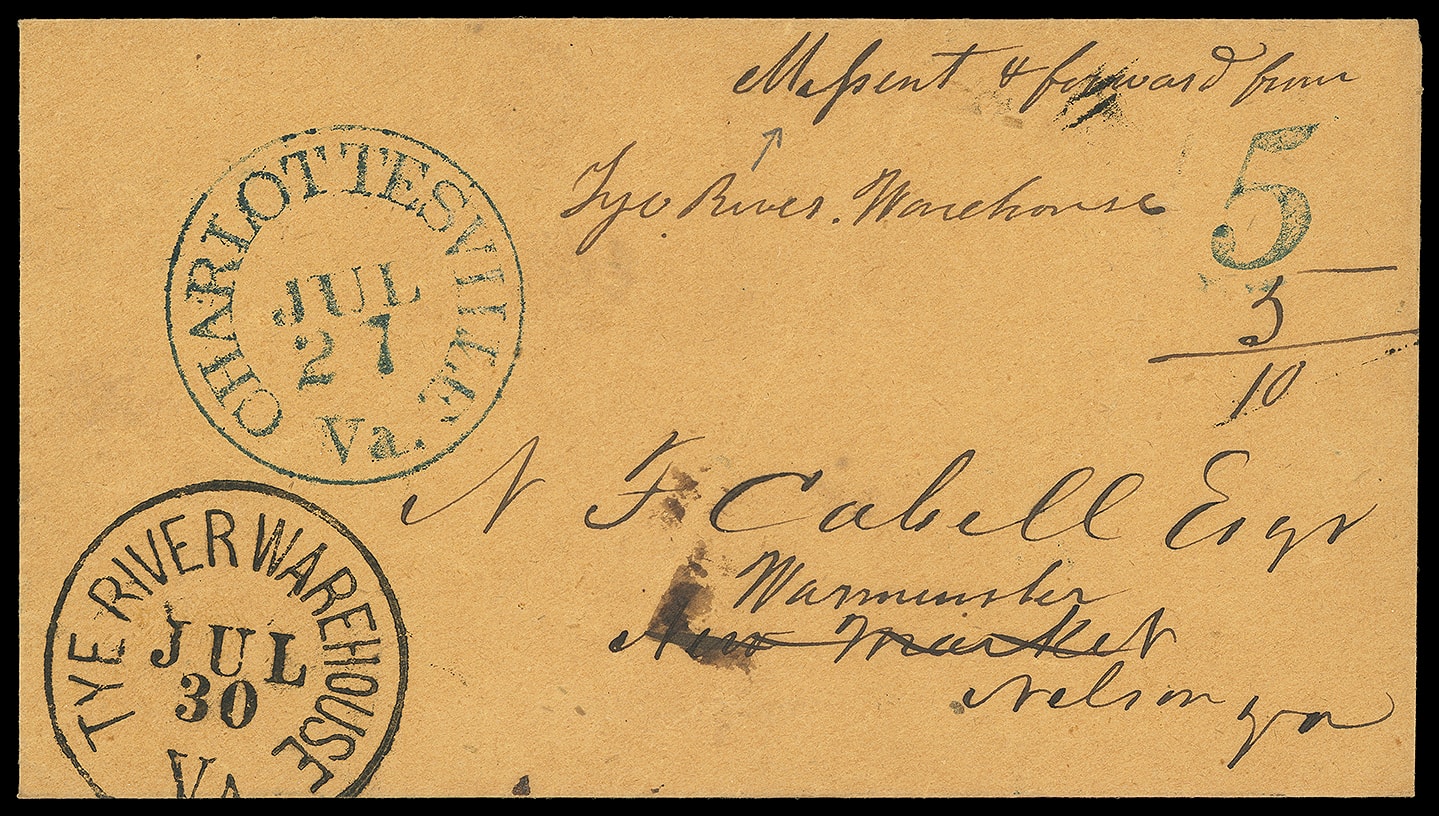 Missent & forward from
Tye River. Warehouse
5
5
10
CHARLOTTESVILLE
JUL
27
Va.
N F Cabell Esqr
Warminster
New Market
Nelson Va
TYE RIVER WAREHOUSE
JUL
30
VA